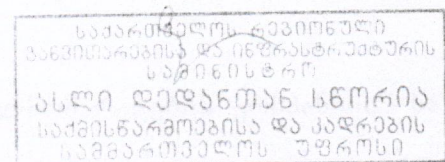 საქართველოს რეგიონული
განვითარებისა და ინფრასტრუქტურის
სამინისტრო
ასლი დედანთან სწორია
საქმისწარმოებისა და კადრების
სამმართველოს უფროსი